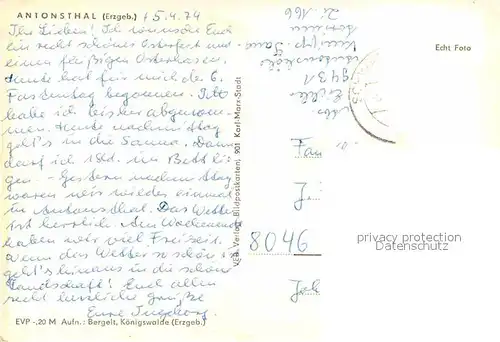 ANTONSTHAL (Erzgeb.) 5.4.74
Ihr Lieben! Ich wünsche Euch
ein recht schönes Osterfest und
einen fleißigen Osterhasen.
Heute hat für mich der 6.
Fastentag begonnen. 
habe ich bisher abgenom-
men. Heute nachmittag
geht's in die Sauna. Dann
darf ich 1 Std. im Bett lie-
gen. - Gestern nachmittag
waren wir wieder einmal
in Antonsthal. Das Wetter
ist herrlich. Am Wochenende
haben wir viel Freizeit.
Wenn das Wetter so schön ist
geht's hinaus in die schöne
Landschaft! Euch allen
recht herzliche Grüße
Eure Ingeborg
EVP -,20 M Aufn.: Bergelt, Königswalde (Erzgeb.)
VEB Verlag Bildpostkarten, 901 Karl-Marx-Stadt
9431
Zi. 166
Echt Foto
Fam
8046
privacy protection
Datenschutz